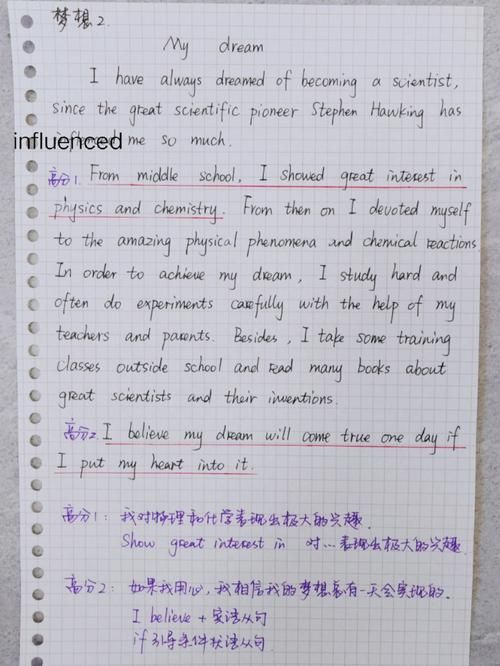 梦想2.
My dream
I have always dreamed of becoming a scientist,
since the great scientific pioneer Stephen Hawking has
influenced me so much.
高分1. From middle school, I showed great interest in
physics and chemistry. From then on I devoted myself
to the amazing physical phenomena and chemical reactions
In order to achieve my dream, I study hard and
often do experiments carefully with the help of my
teachers and parents. Besides, I take some training
classes outside school and read many books about
great scientists and their inventions.
高分2. I believe my dream will come true one day if
I put my heart into it.
高分1: 我对物理和化学表现出极大的兴趣.
Show great interest in 对...表现出极大的兴趣.
高分2: 如果我用心, 我相信我的梦想总有一天会实现的.
I believe + 宾语从句
if引导条件状语从句.